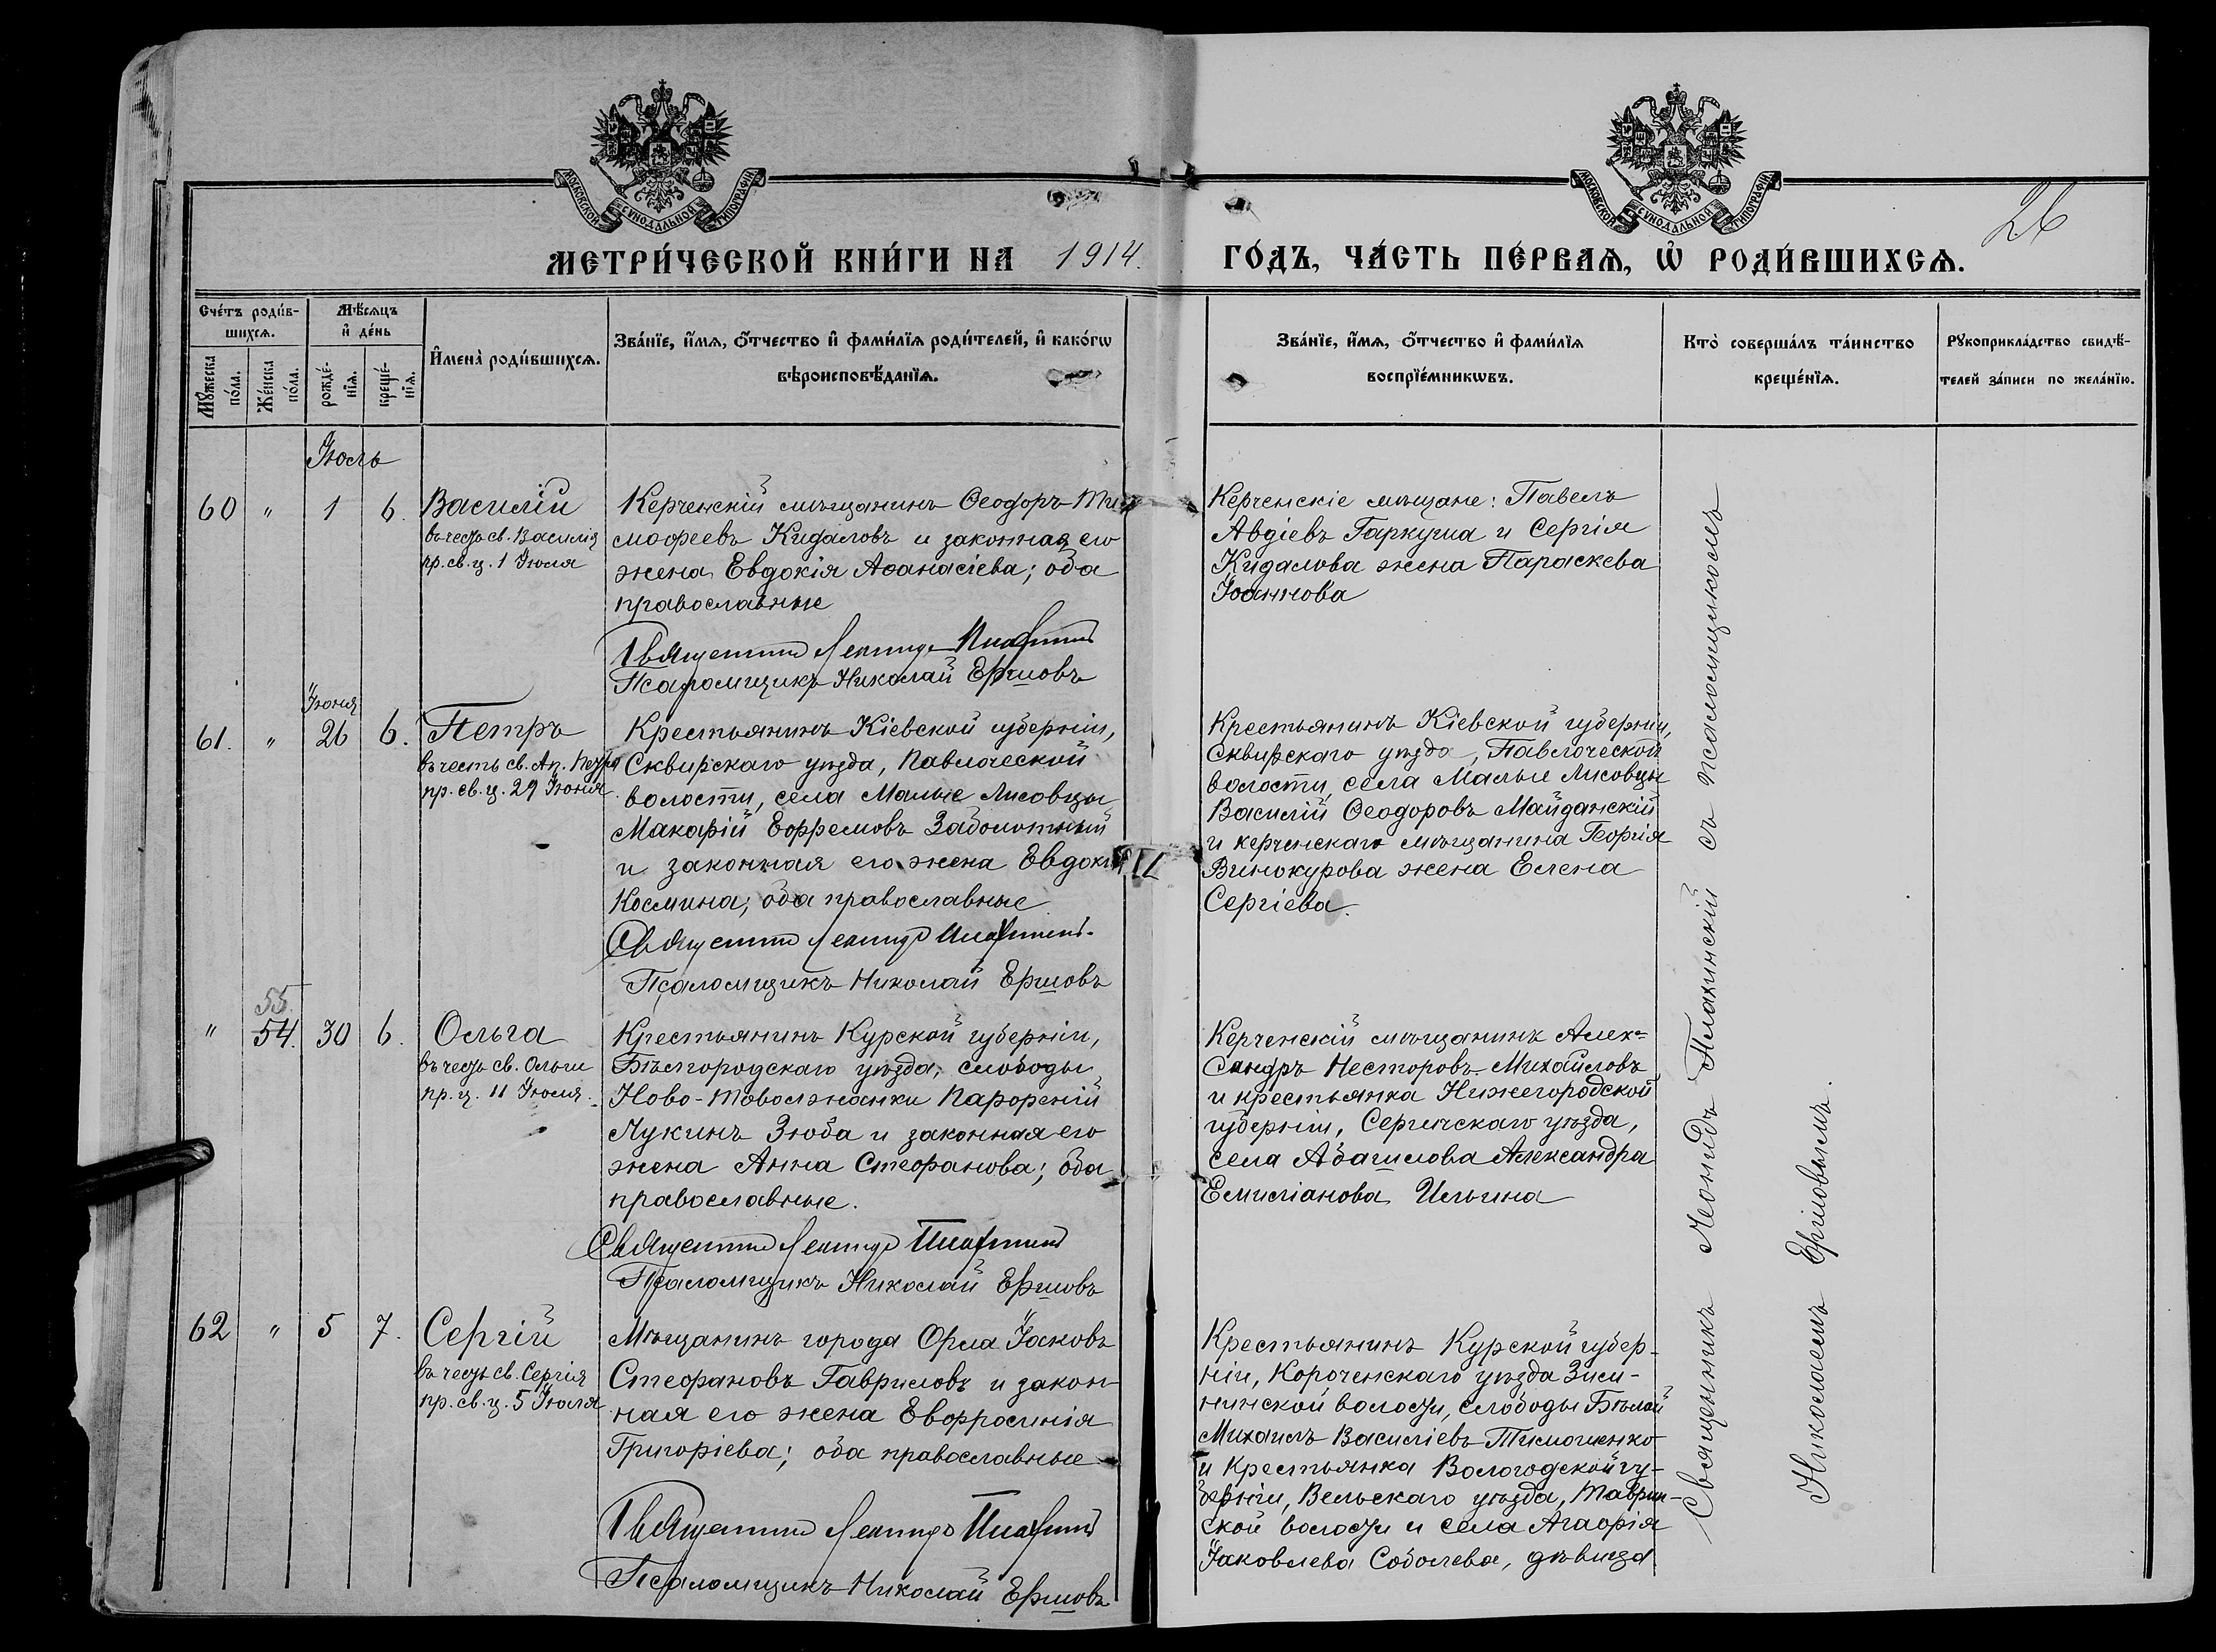 МОСКОВСКОЙ СѴНОДАЛЬНОЙ ТИПОГРАФІИ
МОСКОВСКОЙ СѴНОДАЛЬНОЙ ТИПОГРАФІИ
26
МЕТРИ́ЧЕСКОЙ КНИ́ГИ НА 1914. ГО́ДЪ, ЧА́СТЬ ПЕ́РВАѦ, Ѡ҆ РОДИ́ВШИХСѦ.
Сче́тъ роди́в-
шихсѧ.
Мꙋ́жеска по́ла.
Же́нска по́ла.
Мѣ́сѧцъ
и҆ де́нь
рожде́-
нїѧ.
креще́-
нїѧ.
И҆мена̀ роди́вшихсѧ.
Зва́нїе, и҆́мѧ, ѻ҆́тчество и҆ фами́лїѧ роди́телей, и҆ како́гѡ
вѣроисповѣ́данїѧ.
Зва́нїе, и҆́мѧ, ѻ҆́тчество и҆ фами́лїѧ
воспрїе́мникѡвъ.
Кто̀ соверша́лъ та́инство
креще́нїѧ.
Рꙋкоприкла́дство свидѣ́-
телей за́писи по жела́нїю.
Іюль
60 " 1 6. Василій
въ честь св. Василія
пр. св. ц. 1 Іюля
Керченскій мѣщанинъ Ѳеодоръ Ти-
моѳеевъ Кидаловъ и законная его
жена Евдокія Аѳанасіева; оба
православные
Священникъ Леонидъ
Псаломщикъ Николай Ершовъ
Керченскіе мѣщане: Павелъ
Авдіевъ Гаркуша и Сергія
Кидалова жена Параскева
Іоаннова
Іюня
61. " 26 6. Петръ
въ честь св. Ап. Петра
пр. св. ц. 29 Іюня
Крестьянинъ Кіевской губерніи,
Сквирскаго уѣзда, Паволочской
волости, села Малые Лисовцы
Макарій Ефремовъ Заболотный
и законная его жена Евдокія
Космина; оба православные
Священникъ Леонидъ
Псаломщикъ Николай Ершовъ
Крестьянинъ Кіевской губерніи,
Сквирскаго уѣзда, Павлоческой
волости, села Малые Лисовцы
Василій Ѳеодоровъ Майданскій
и керченскаго мѣщанина Георгія
Винокурова жена Елена
Сергіева.
55.
" 54. 30 6. Ольга
въ честь св. Ольги
пр. ц. 11 Іюля.
Крестьянинъ Курской губерніи,
Бѣлгородскаго уѣзда, слободы
Ново-Товолжанки Парфеній
Лукинъ Зюба и законная его
жена Анна Стефанова; оба
православные.
Священникъ Леонидъ
Псаломщикъ Николай Ершовъ
Керченскій мѣщанинъ Алек-
сандръ Несторовъ Михайловъ
и крестьянка Нижегородской
губерніи, Сергачскаго уѣзда,
села Абаимова Александра
Емиліанова Ильина
62 " 5 7. Сергій
въ честь св. Сергія
пр. св. ц. 5 Іюля
Мѣщанинъ города Орла Іаковъ
Стефановъ Гавриловъ и закон-
ная его жена Евфросинія
Григоріева; оба православные
Священникъ Леонидъ
Псаломщикъ Николай Ершовъ
Крестьянинъ Курской губер-
ніи, Короченскаго уѣзда Зим-
нинской волости, слободы Бѣлой
Михаилъ Василіевъ Тимошенко
и крестьянка Вологодской гу-
берніи, Вельскаго уѣзда, Таврин-
ской волости и села Агафія
Іаковлева Соболева, дѣвица
Священникъ Леонидъ съ псаломщикомъ
Николаемъ Ершовымъ.